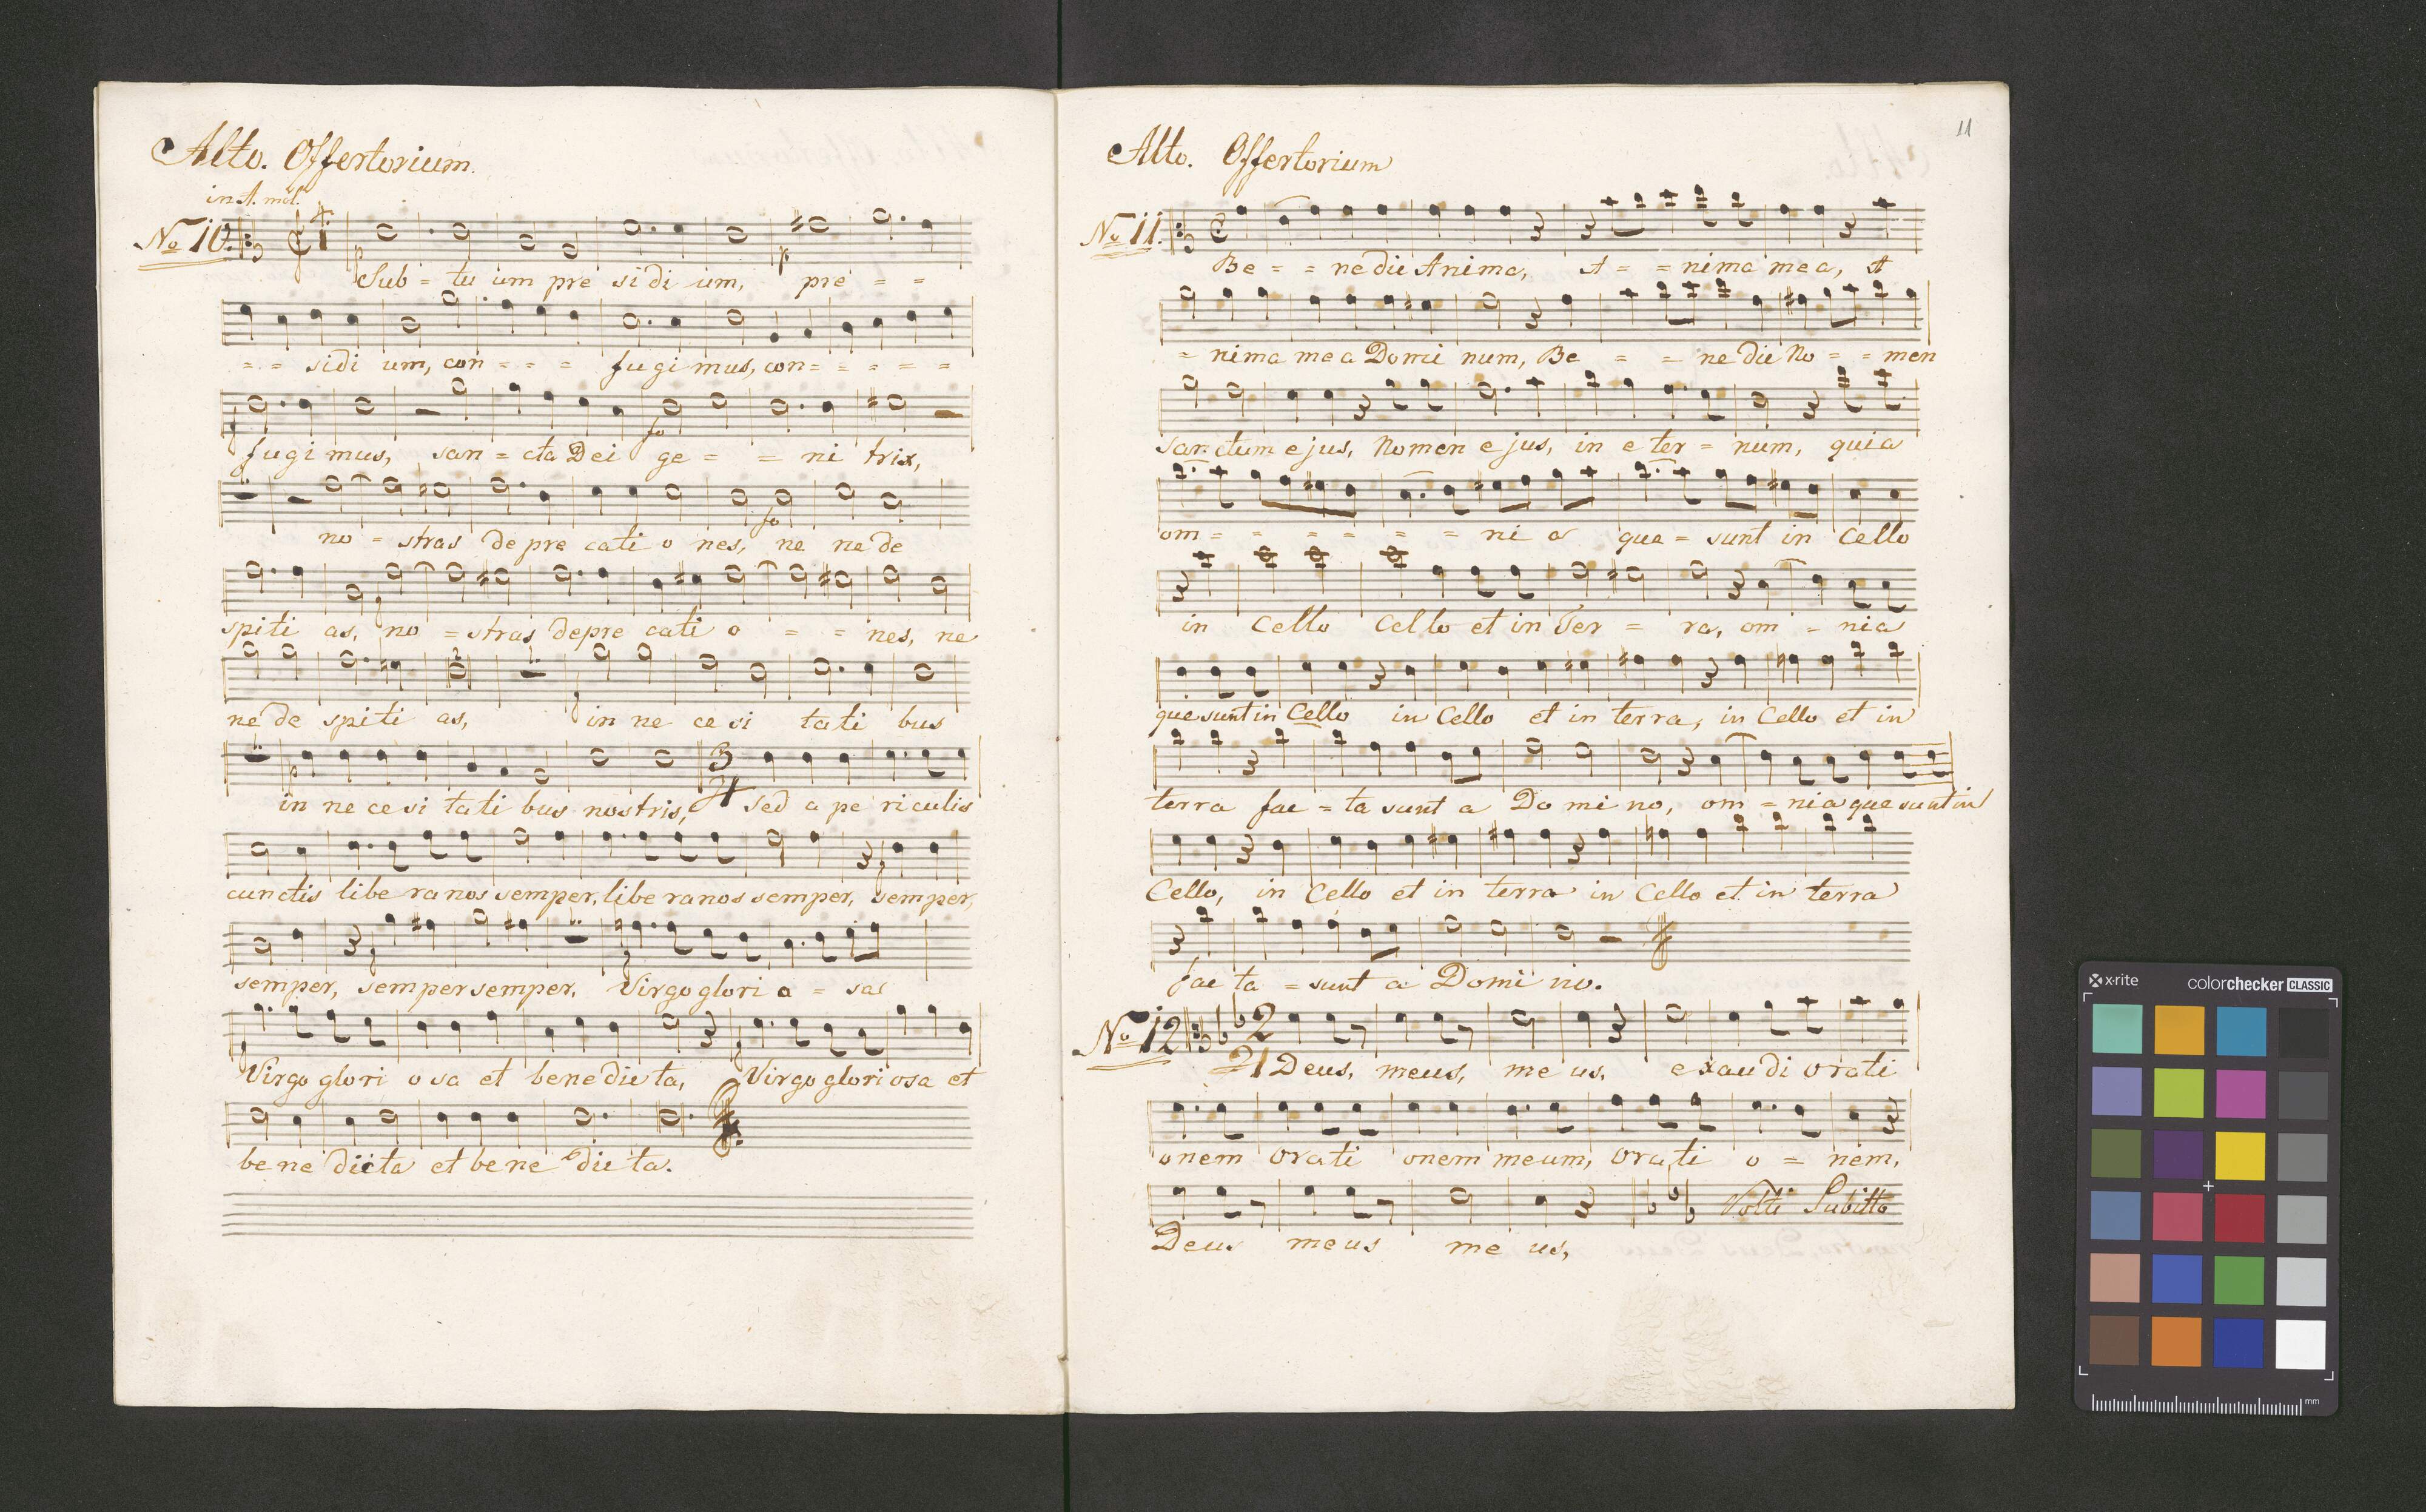 Alto. Offertorium.
in A. mol.
No 10.
Sub = tu um pre si di um, pre = =
= = si di um, con = = = fu gi mus, con = = = = =
fu gi mus, san = cta Dei ge = = ni trix,
no = stras de pre cati o nes, ne ne de
spiti as, no = stras depre cati o = = nes, ne
ne de spi ti as, in ne ce si tati bus
in ne ce si tati bus nostris, 3/4 sed a pe riculis
cunctis libe ra nos semper, libe ra nos semper, semper,
semper, semper semper, Virgo glori o = sa
Virgo glori o sa et bene dicta, Virgo gloriosa et
be ne dicta et be ne dic ta.
11
Alto. Offertorium
No 11.
Be = = ne dic Anima, A = = nima mea, A
= nima mea Domi num, Be = = ne dic No = = men
sanctum ejus, Nomen ejus, in e ter = num, quia
om = = = = = = ni a que = sunt in Cello
in Cello Cello et in Ter = ra, om = nia
que sunt in Cello in Cello et in terra, in Cello et in
terra fac = ta sunt a Do mi no, om = nia que sunt in
Cello, in Cello et in terra in Cello et in terra
fac ta = sunt a Domi no.
No 12
2/4 Deus, meus, me us, exau di o rati
onem orati onem meum, orati o = nem,
Volti Subitto
Deus meus me us,
x-rite colorchecker CLASSIC
mm